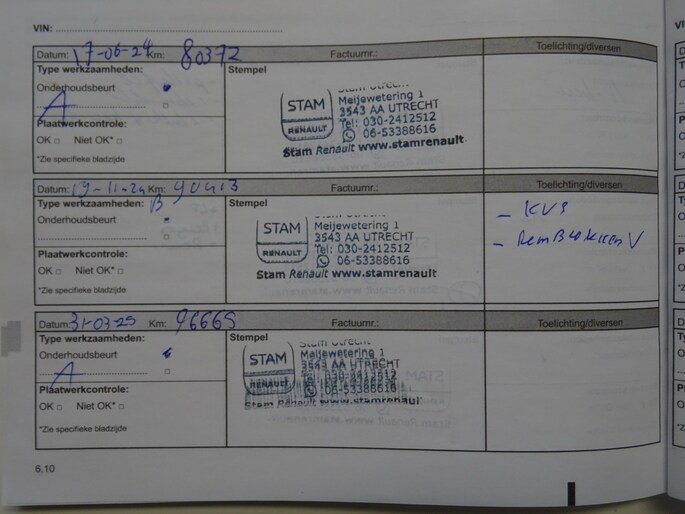 VIN:
Datum: 17-06-24 Km: 80372 Factuurnr.: Toelichting/diversen
Type werkzaamheden: Stempel
Onderhoudsbeurt
A
Plaatwerkcontrole:
OK Niet OK*
*Zie specifieke bladzijde
STAM
RENAULT
Stam Utrecht
Meijewetering 1
3543 AA UTRECHT
Tel: 030-2412512
06-53388616
Stam Renault www.stamrenault
Datum: 19-11-24 Km: 90413 Factuurnr.: Toelichting/diversen
Type werkzaamheden: B Stempel
Onderhoudsbeurt
Plaatwerkcontrole:
OK Niet OK*
*Zie specifieke bladzijde
STAM
RENAULT
Meijewetering 1
3543 AA UTRECHT
Tel: 030-2412512
06-53388616
Stam Renault www.stamrenault
- KVS
- RemBlokken V
Datum: 31-03-25 Km: 96665 Factuurnr.: Toelichting/diversen
Type werkzaamheden: Stempel
Onderhoudsbeurt
A
Plaatwerkcontrole:
OK Niet OK*
*Zie specifieke bladzijde
STAM
RENAULT
Stam Utrecht
Meijewetering 1
3543 AA UTRECHT
Tel: 030-2412512
06-53388616
Stam Renault www.stamrenault
6.10